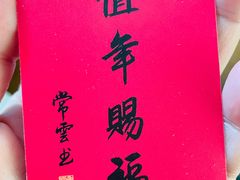 值年賜福
常雲书